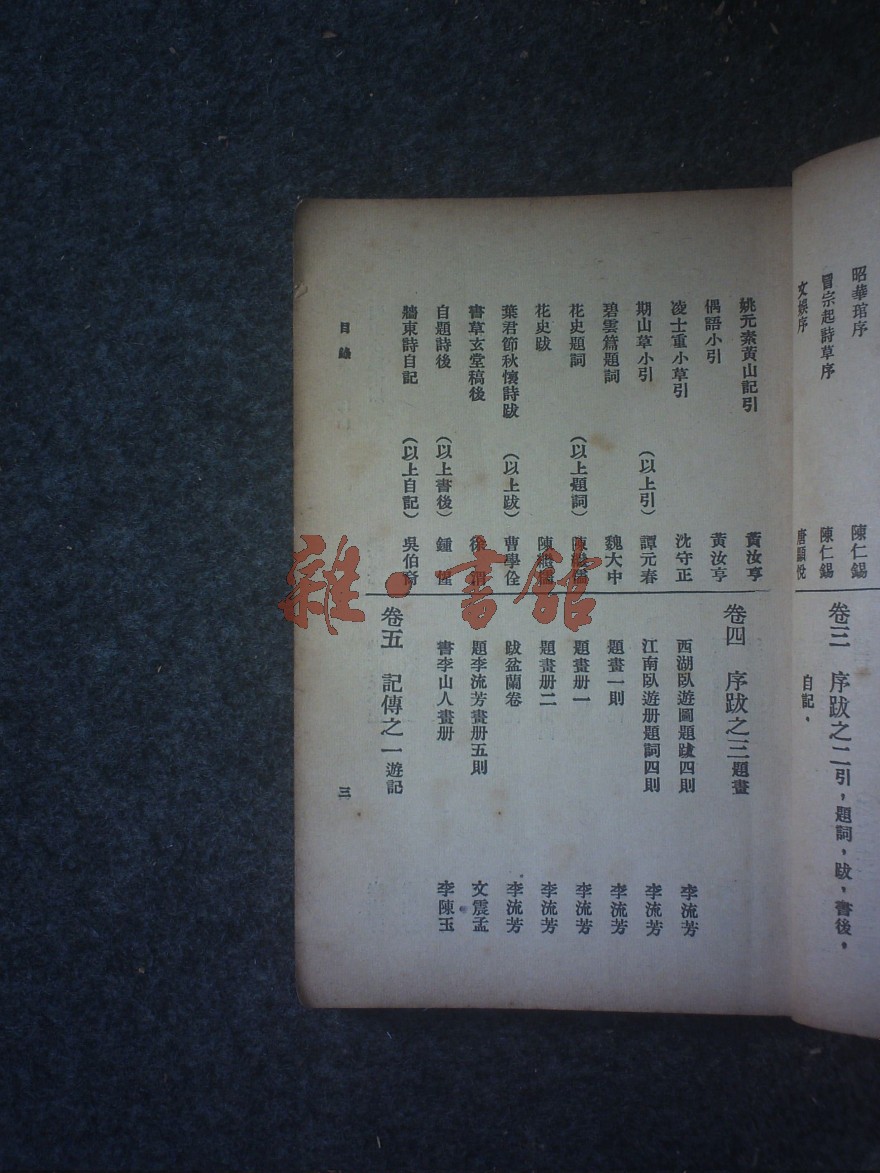 昭華琯序　陳仁錫
冒宗起詩草序　陳仁錫
文娛序　唐顯悅
卷三　序跋之二引，題詞，跋，書後，
自記，
姚元素黃山記引　黃汝亨
偶語小引　黃汝亨
凌士重小草引　沈守正
期山草小引　（以上引）　譚元春
碧雲篇題詞　魏大中
花史題詞　（以上題詞）　陳繼儒
花史跋　陳繼儒
葉君節秋懷詩跋　（以上跋）　曹學佺
書草玄堂稿後　徐渭
自題詩後　（以上書後）　鍾惺
牆東詩自記　（以上自記）　吳伯裔
卷四　序跋之三題畫
西湖臥遊圖題跋四則　李流芳
江南臥遊册題詞四則　李流芳
題畫一則　李流芳
題畫册一　李流芳
題畫册二　李流芳
跋盆蘭卷　李流芳
題李流芳畫册五則　文震孟
書李山人畫册　李陳玉
卷五　記傳之一遊記
目錄
三
雜·書館